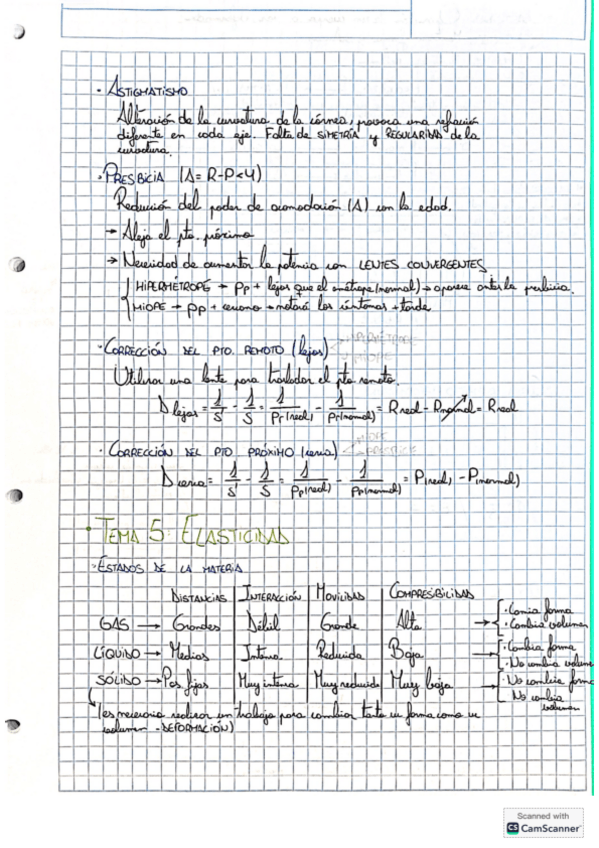 · ASTIGMATISMO
Alteración de la curvatura de la córnea, provoca una refracción
diferente en cada eje. Falta de SIMETRÍA y REGULARIDAD de la
curvatura.
· PRESBICIA (A = R-P<4)
Reducción del poder de acomodación (A) con la edad.
→ Aleja el pto. próximo
→ Necesidad de aumentar la potencia con LENTES CONVERGENTES
HIPERMÉTROPE → Pp + lejos que el emétrope (normal) → aparece antes la presbicia.
MIOPE → Pp + cercano → notará los síntomas + tarde
· CORRECCIÓN DEL PTO. REMOTO (lejos)
Utilizar una lente para trasladar el pto remoto.
D lejos = 1/S' - 1/S = 1/Pr(real) - 1/Pr(normal) = R real - R normal = R real
· CORRECCIÓN DEL PTO PRÓXIMO (cerca)
D cerca = 1/S' - 1/S = 1/Pp(real) - 1/Pp(normal) = P(real) - P(normal)
· TEMA 5: ELASTICIDAD
· ESTADOS DE LA MATERIA
DISTANCIAS | INTERACCIÓN | MOVILIDAD | COMPRESIBILIDAD
GAS → Grandes | Débil | Grande | Alta → · Cambia forma
· Cambia volumen
LÍQUIDO → Medias | Intensa | Reducida | Baja → · Cambia forma
· No cambia volumen
SÓLIDO → Pos fijas | Muy intensa | Muy reducida | Muy baja → · No cambia forma
No cambia
volumen
(es necesario realizar un trabajo para cambiar tanto su forma como su
volumen - DEFORMACIÓN)
Scanned with
CS CamScanner